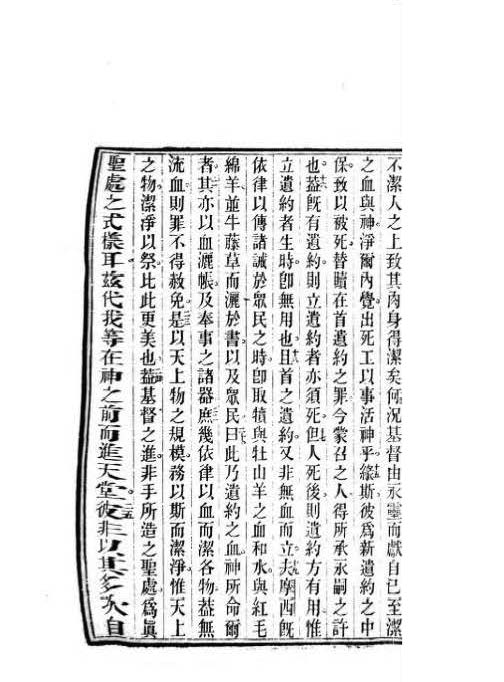 不潔人之上致其肉身得潔矣何況基督由永靈而獻自已至潔
之血與神淨爾内覺出死工以事活神乎緣斯彼爲新遺約之中
保致以被死替贖在首遺約之罪今蒙召之人得所承永嗣之許
也葢旣有遺約則立遺約者亦須死但人死後則遺約方有用惟
立遺約者生時卽無用也且首之遺約又非無血而立夫摩西旣
依律以傳諸誡於眾民之時卽取犢與牡山羊之血和水與紅毛
綿羊並牛藤草而灑於書以及眾民曰此乃遺約之血神所命爾
者其亦以血灑帳及奉事之諸器庶幾依律以血而潔各物葢無
流血則罪不得赦免是以天上物之規模務以斯而潔淨惟天上
之物潔淨以祭比此更美也葢基督之進非手所造之聖處爲眞
聖處之式㨾耳兹代我等在神之前而進天堂彼非以其多次自